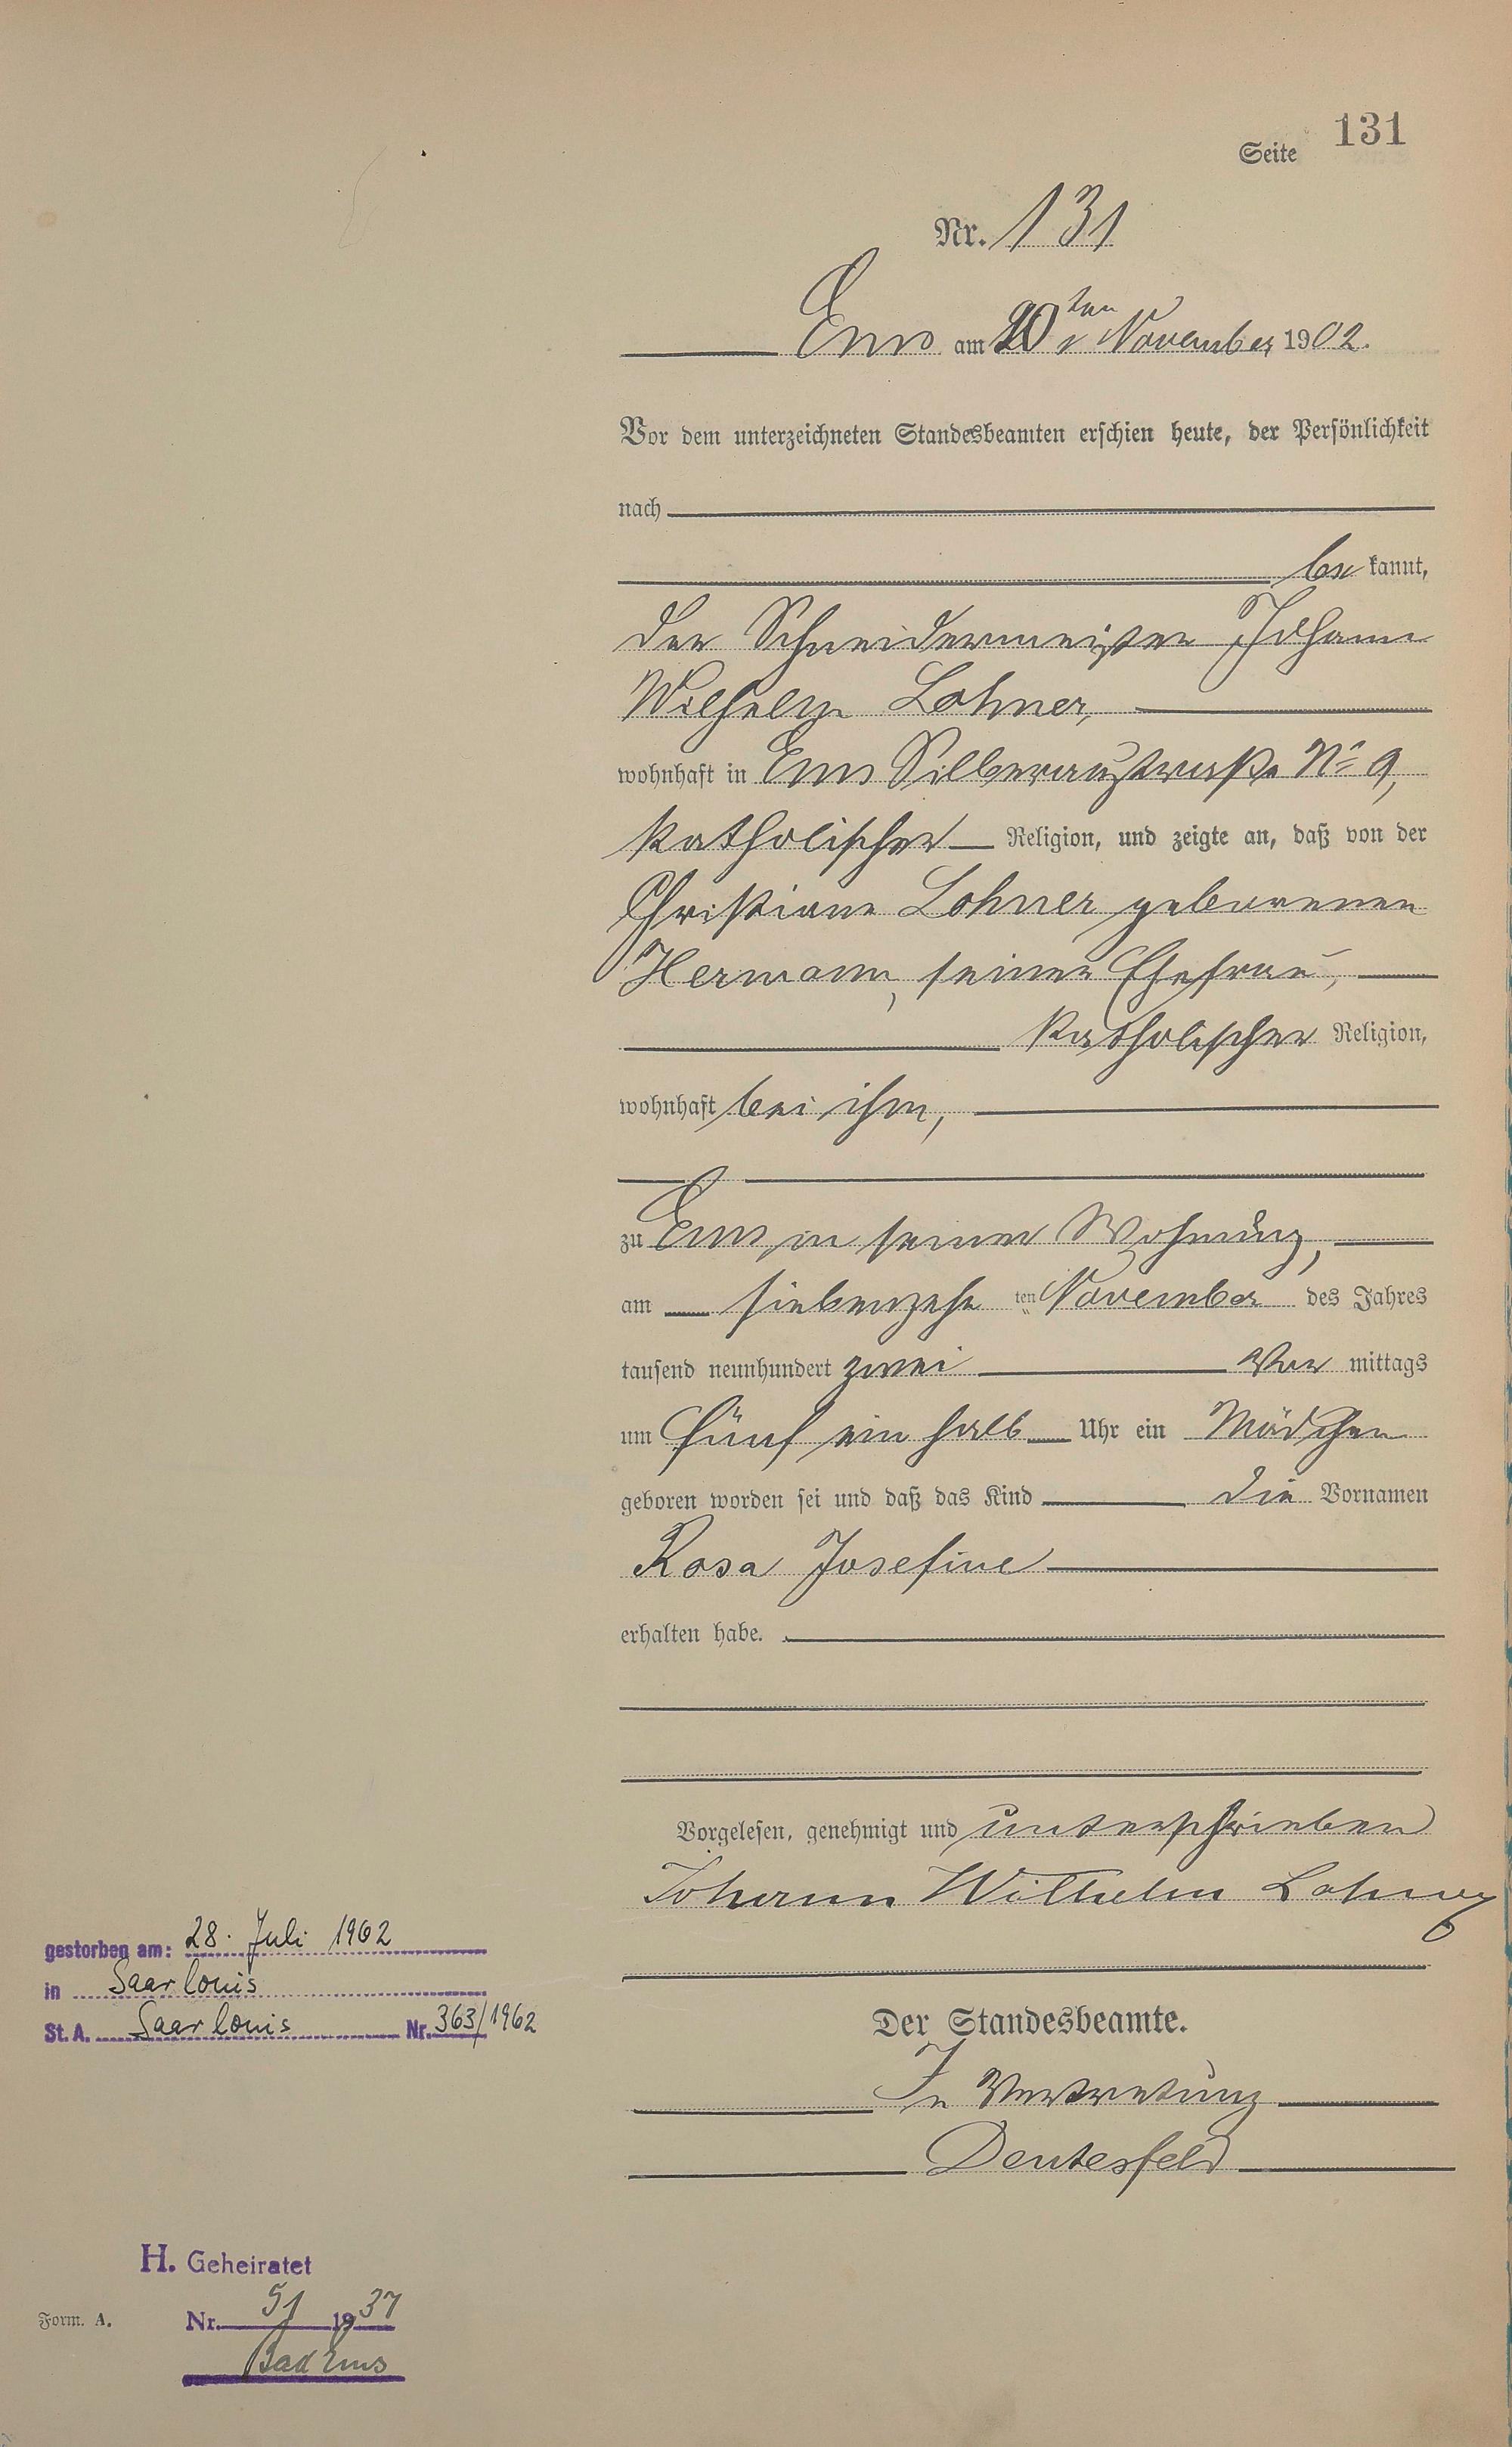 Seite 131
Nr. 131
Ems am 20ten November 1902.
Vor dem unterzeichneten Standesbeamten erschien heute, der Persönlichkeit
nach
be kannt,
der Schneidermeister Johann
Wilhelm Lohner,
wohnhaft in Ems Silberaustraße No 9,
katholischer Religion, und zeigte an, daß von der
Christiane Lohner geborenen
Hermann, seiner Ehefrau,
katholischer Religion,
wohnhaft bei ihm,
zu Ems in seiner Wohnung,
am siebenzehn ten November des Jahres
tausend neunhundert zwei Vor mittags
um fünf ein halb Uhr ein Mädchen
geboren worden sei und daß das Kind die Vornamen
Rosa Josefine
erhalten habe.
Vorgelesen, genehmigt und unterschrieben
Johann Wilhelm Lohner
Der Standesbeamte.
In Vertretung
Deutesfeld
gestorben am: 28. Juli 1962
in Saarlouis
St. A. Saarlouis Nr. 363/1962
H. Geheiratet
Nr. 51 1937
Bad Ems
Form. A.